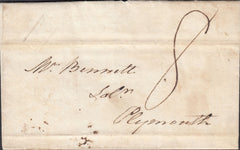 Mr. Bennett
Solr.
Plymouth
8